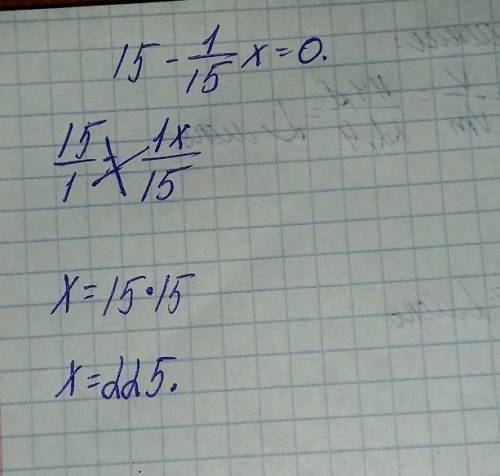 15 - 1/15 x = 0.
15/1 = 1x/15
x = 15 · 15
x = 225.